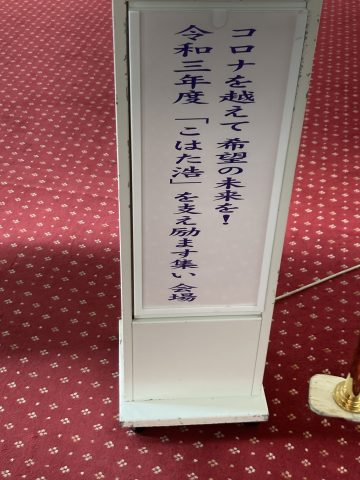 コロナを越えて希望の未来を!
令和三年度 「こはた浩」を支え励ます集い 会場